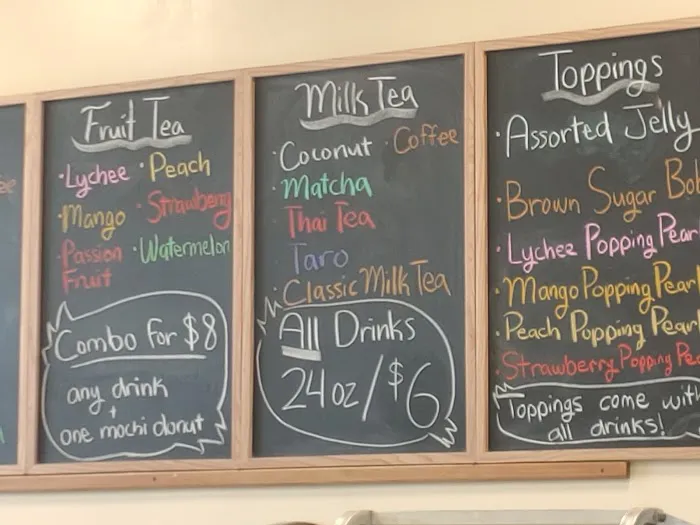 Fruit Tea
· Lychee · Peach
· Mango · Strawberry
· Passion Fruit · Watermelon
Combo for $8
any drink
+
one mochi donut
Milk Tea
· Coconut · Coffee
· Matcha
· Thai Tea
· Taro
· Classic Milk Tea
All Drinks
24oz/$6
Toppings
· Assorted Jelly
· Brown Sugar Bob
· Lychee Popping Pearl
· Mango Popping Pearl
· Peach Popping Pearl
· Strawberry Popping Pea
Toppings come with
all drinks!